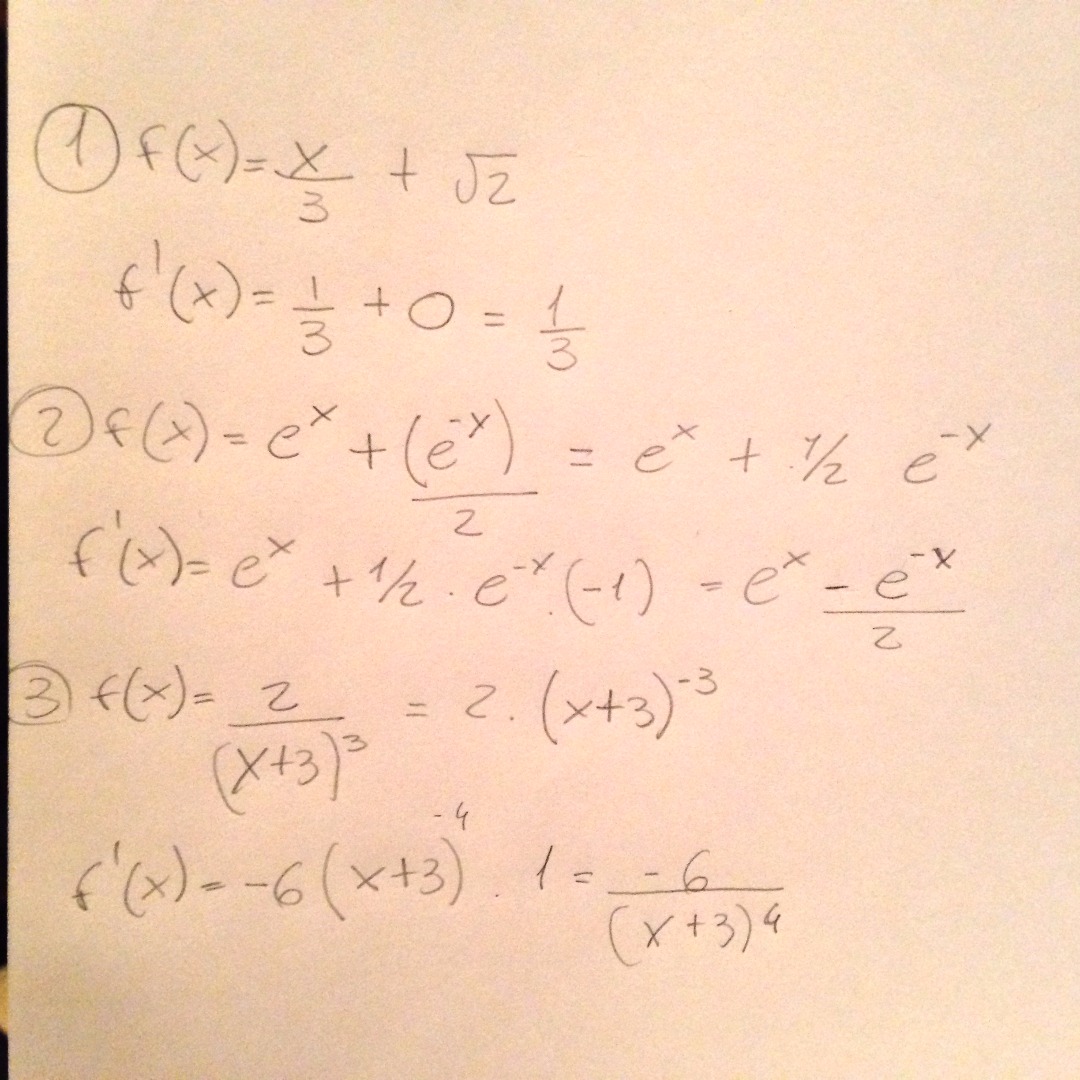 ① f(x) = x/3 + √2
f'(x) = 1/3 + 0 = 1/3
② f(x) = eˣ + (e⁻ˣ)/2 = eˣ + 1/2 e⁻ˣ
f'(x) = eˣ + 1/2 · e⁻ˣ · (-1) = eˣ - e⁻ˣ/2
③ f(x) = 2/(x+3)³ = 2 · (x+3)⁻³
f'(x) = -6(x+3)⁻⁴ · 1 = -6/(x+3)⁴